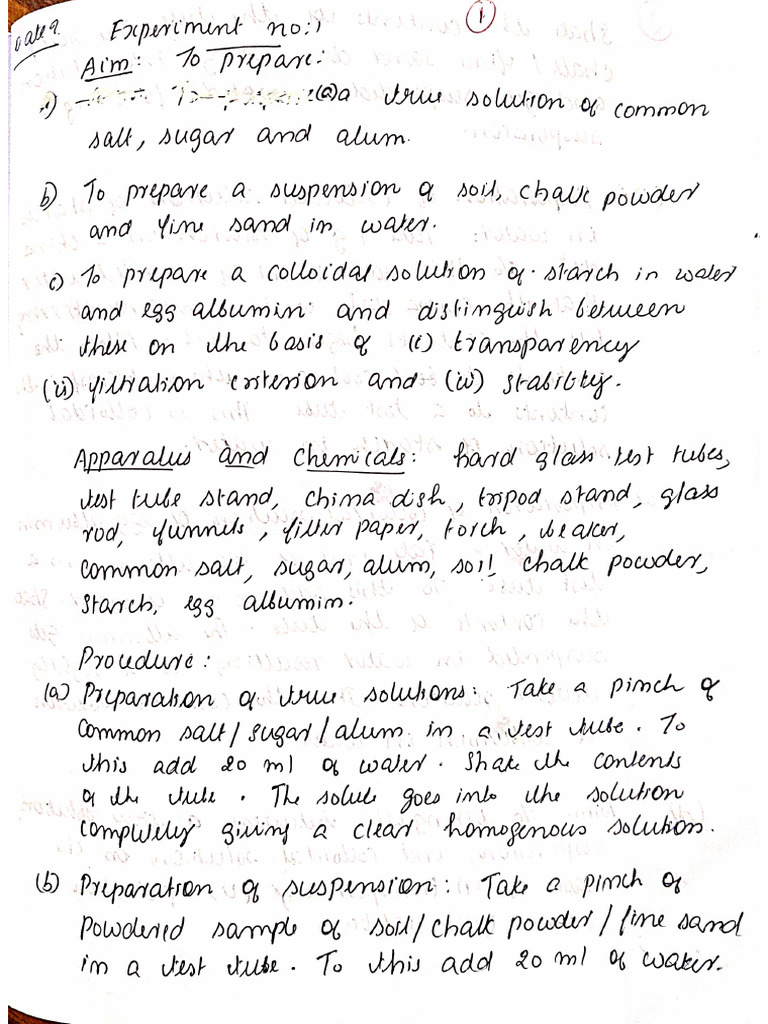 Date?
Experiment no:1
1
Aim: To prepare:
a) (a) a true solution of common
salt, sugar and alum.
b) To prepare a suspension of soil, chalk powder
and fine sand in water.
c) To prepare a colloidal solution of starch in water
and egg albumin and distinguish between
these on the basis of (i) transparency
(ii) filtration criterion and (iii) stability.
Apparatus and Chemicals: hard glass test tubes,
test tube stand, china dish, tripod stand, glass
rod, funnels, filter paper, torch, beaker,
common salt, sugar, alum, soil, chalk powder,
starch, egg albumin.
Procedure:
(a) Preparation of true solutions: Take a pinch of
common salt/sugar/alum in a test tube. To
this add 20 ml of water. Shake the contents
of the tube. The solute goes into the solution
completely giving a clear homogenous solution.
(b) Preparation of suspension: Take a pinch of
powdered sample of soil/chalk powder/fine sand
in a test tube. To this add 20 ml of water.